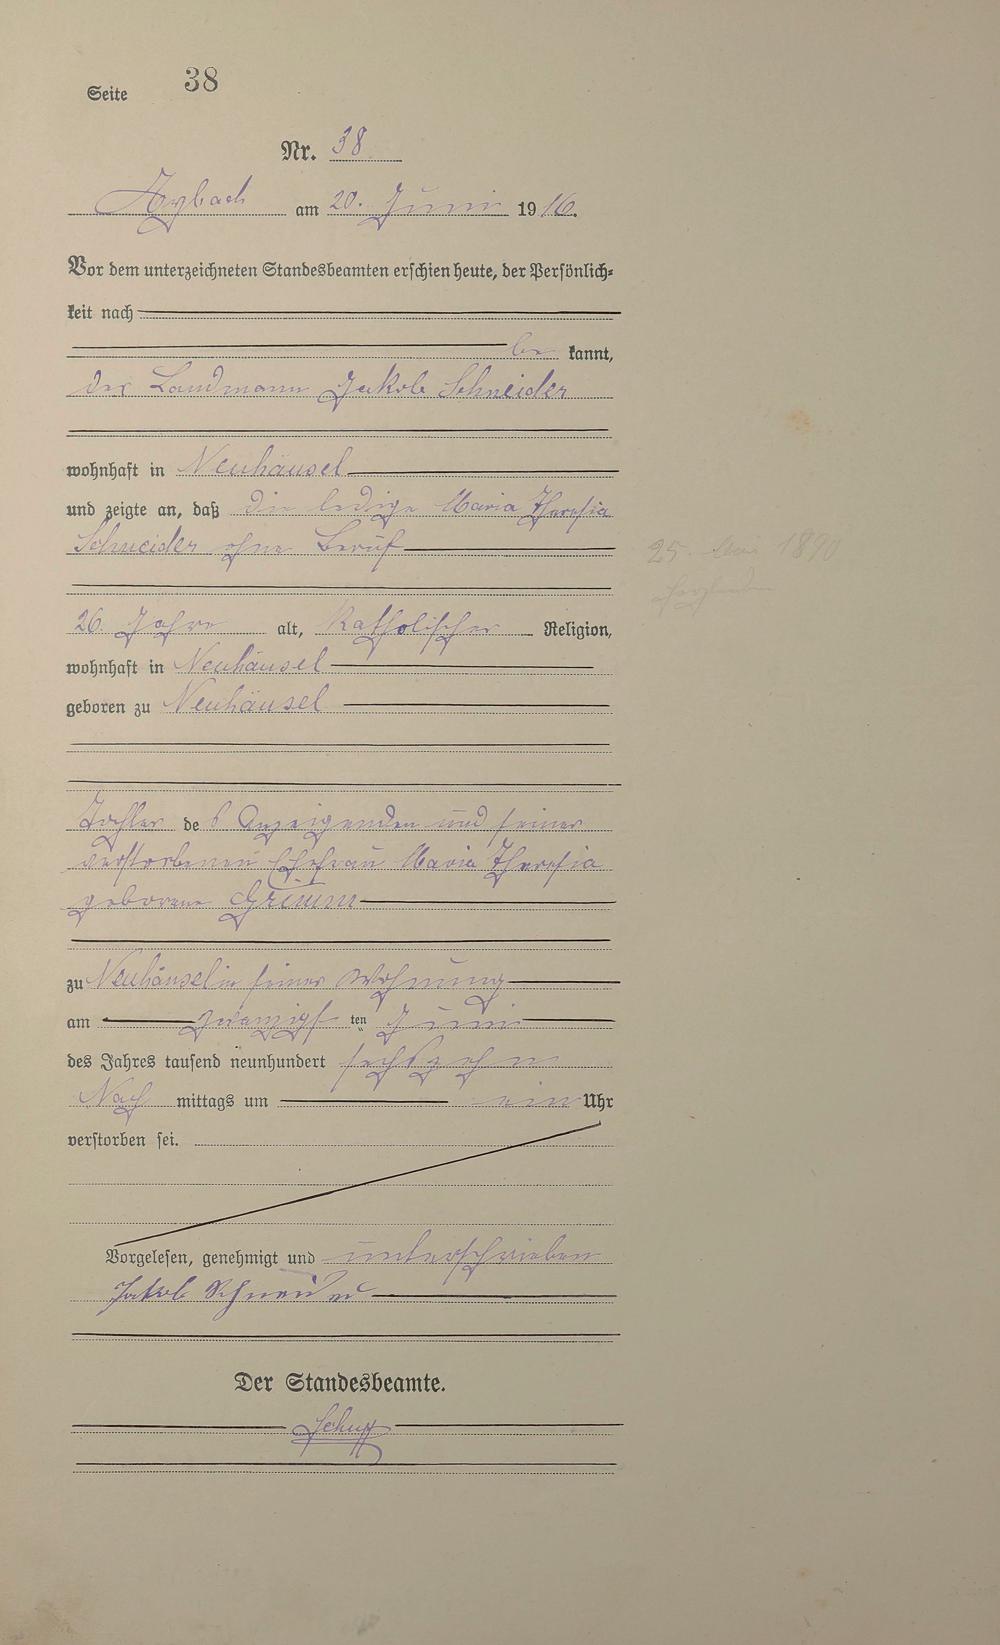 Seite 38
Nr. 38
Arzbach am 20. Juni 1916.
Vor dem unterzeichneten Standesbeamten erschien heute, der Persönlich-
keit nach
be kannt,
der Landmann Jakob Schneider
wohnhaft in Neuhäusel
und zeigte an, daß die ledige Maria Theresia
Schneider ohne Beruf
26 Jahre alt, katholischer Religion,
wohnhaft in Neuhäusel
geboren zu Neuhäusel
Tochter des Anzeigenden und seiner
verstorbenen Ehefrau Maria Theresia
geborene Grimm
zu Neuhäusel in seiner Wohnung
am zwanzigsten Juni
des Jahres tausend neunhundert sechszehn
Nach mittags um ein Uhr
verstorben sei.
Vorgelesen, genehmigt und unterschrieben
Jakob Schneider
Der Standesbeamte.
25. Mai 1890